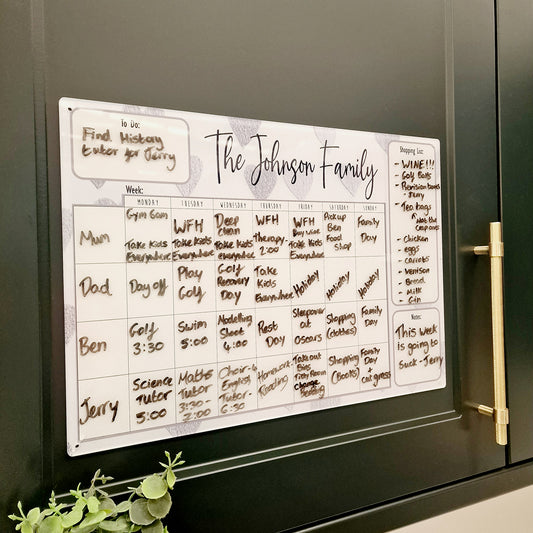 To Do:
Find History
tutor for Jerry
The Johnson Family
Week:
MONDAY TUESDAY WEDNESDAY THURSDAY FRIDAY SATURDAY SUNDAY
Mum
Gym 6am
Take Kids
Everywhere
WFH
Take Kids
Everywhere
Deep
clean
Take kids
Everywhere
WFH
Therapy
2:00
WFH
Buy wine
Take Kids
Everywhere
Pick up
Ben
Food
Shop
Family
Day
Dad
Day off
Play
Golf
Golf
Recovery
Day
Take
Kids
Everywhere
Holiday
Holiday
Holiday
Ben
Golf
3:30
Swim
5:00
Modelling
Shoot
4:00
Rest
Day
Sleepover
at
Oscars
Shopping
(clothes)
Family
Day
Jerry
Science
Tutor
5:00
Maths
Tutor
3:30-
Choir-6
English
Tutor-
6:30
Homework
Reading
Takeout
Bins
Tidy Room
change
Bedding
Shopping
(Books)
Family
Day
+
Cut grass
Shopping List:
- WINE!!!
- Golf Balls
- Jerry
- Tea bags
Not the
cheap ones
- Chicken
- eggs
- carrots
- venison
- Bread
- Milk
- Gin
Notes:
This week
is going to
suck - Jerry